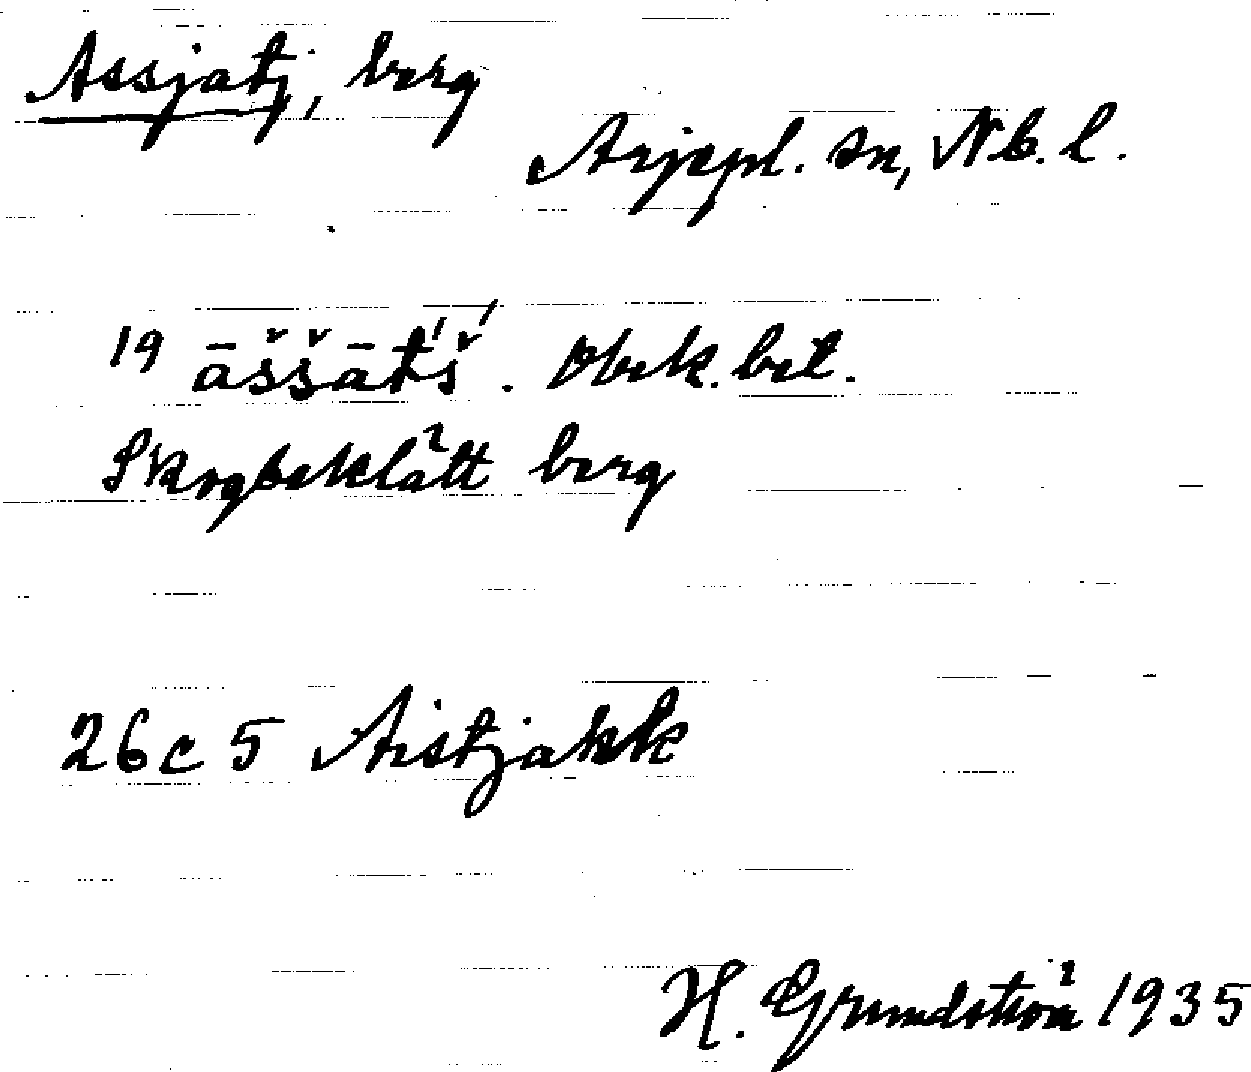 Assjatj, berg
Arjepl. sn, Nb. l.
19 āšṣ̌āt́š́. Obek. bet.
Skogbeklätt berg
26 c 5 Aistjakk
H. Grundström 1935